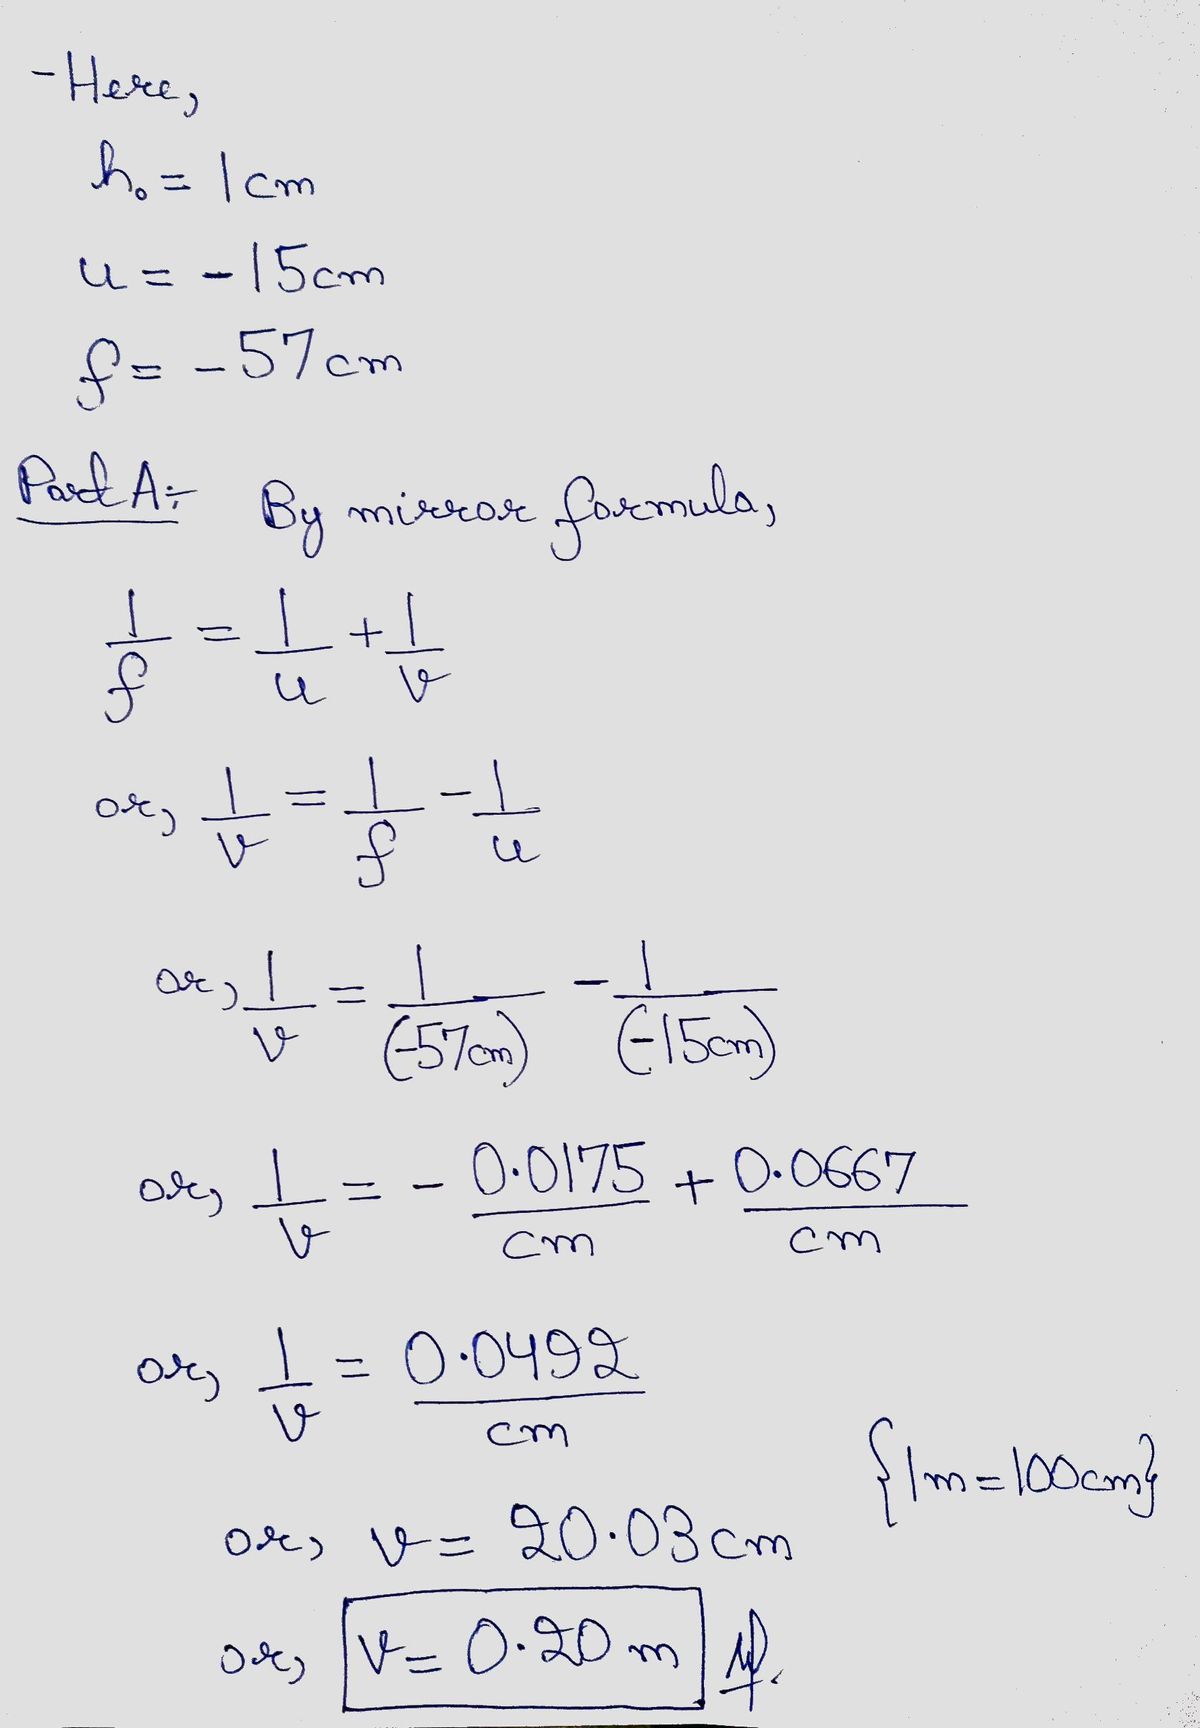 - Here,
h₀ = 1cm
u = -15cm
f = -57cm
Part A:- By mirror formula,
1/f = 1/u + 1/v
or, 1/v = 1/f - 1/u
or, 1/v = 1/(-57cm) - 1/(-15cm)
or, 1/v = - 0.0175/cm + 0.0667/cm
or, 1/v = 0.0492/cm
{1m = 100cm}
or, v = 20.03cm
or, v = 0.20 m